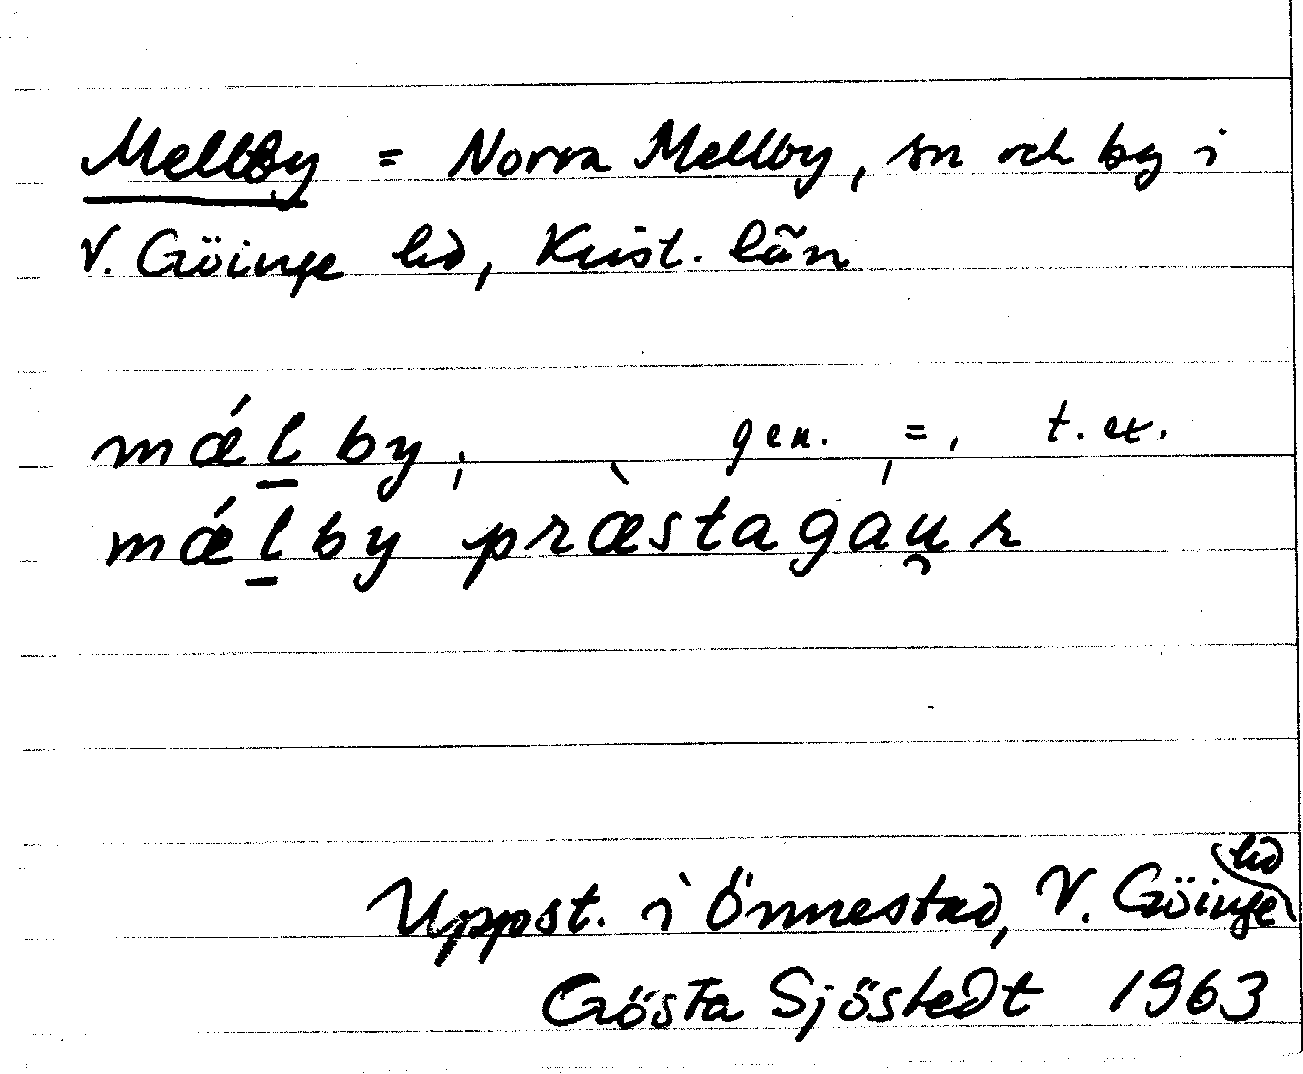 Mellby = Norra Mellby, sn och by i
V. Göinge hd, Krist. län
mǽl̲by; gen. =, t.ex.
mǽl̲by præ̀stagáu̯r
Uppst. i Önnestad, V. Göinge hd
Gösta Sjöstedt 1963